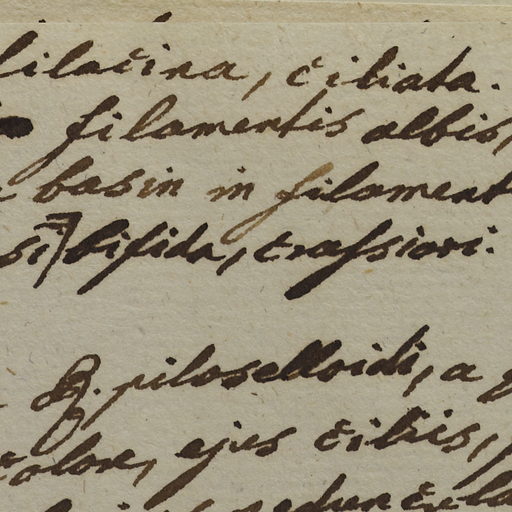 lilacina, ciliata.
filamentis albis,
basin in filament
bifida, crassiori.
piloselloidi, a
colore, ejus ciliis,